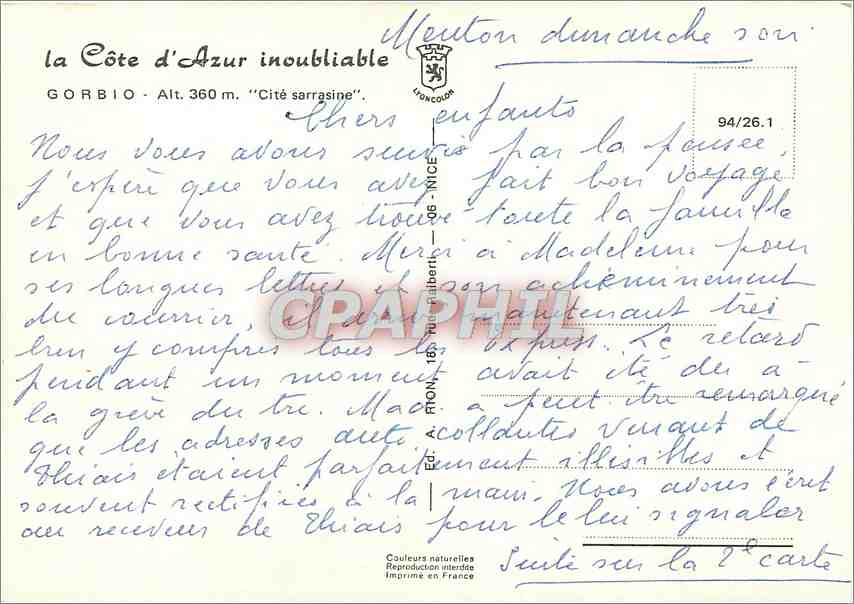 Menton dimanche soir
la Côte d'Azur inoubliable
GORBIO - Alt. 360 m. "Cité sarrasine".
LYONCOLOR
94/26.1
Chers enfants
Nous vous avons suivis par la pensée,
j'espère que vous avez fait bon voyage
et que vous avez trouvé toute la famille
en bonne santé. Merci à Madeleine pour
ses longues lettres et son acheminement
du courrier, il arrive maintenant très
bien y compris tous les Express. Le retard
pendant un moment avait été du à
la grève du tri. Mad. a peut être remarqué
que les adresses auto collantes venant de
Thiais étaient parfaitement illisibles et
souvent rectifiées à la main. Nous avons écrit
au receveur de Thiais pour le lui signaler
Suite sur la 2e carte
Ed. A. RION, 18, rue Raiberti — 06 - NICE
Couleurs naturelles
Reproduction interdite
Imprimé en France
CPAPHIL